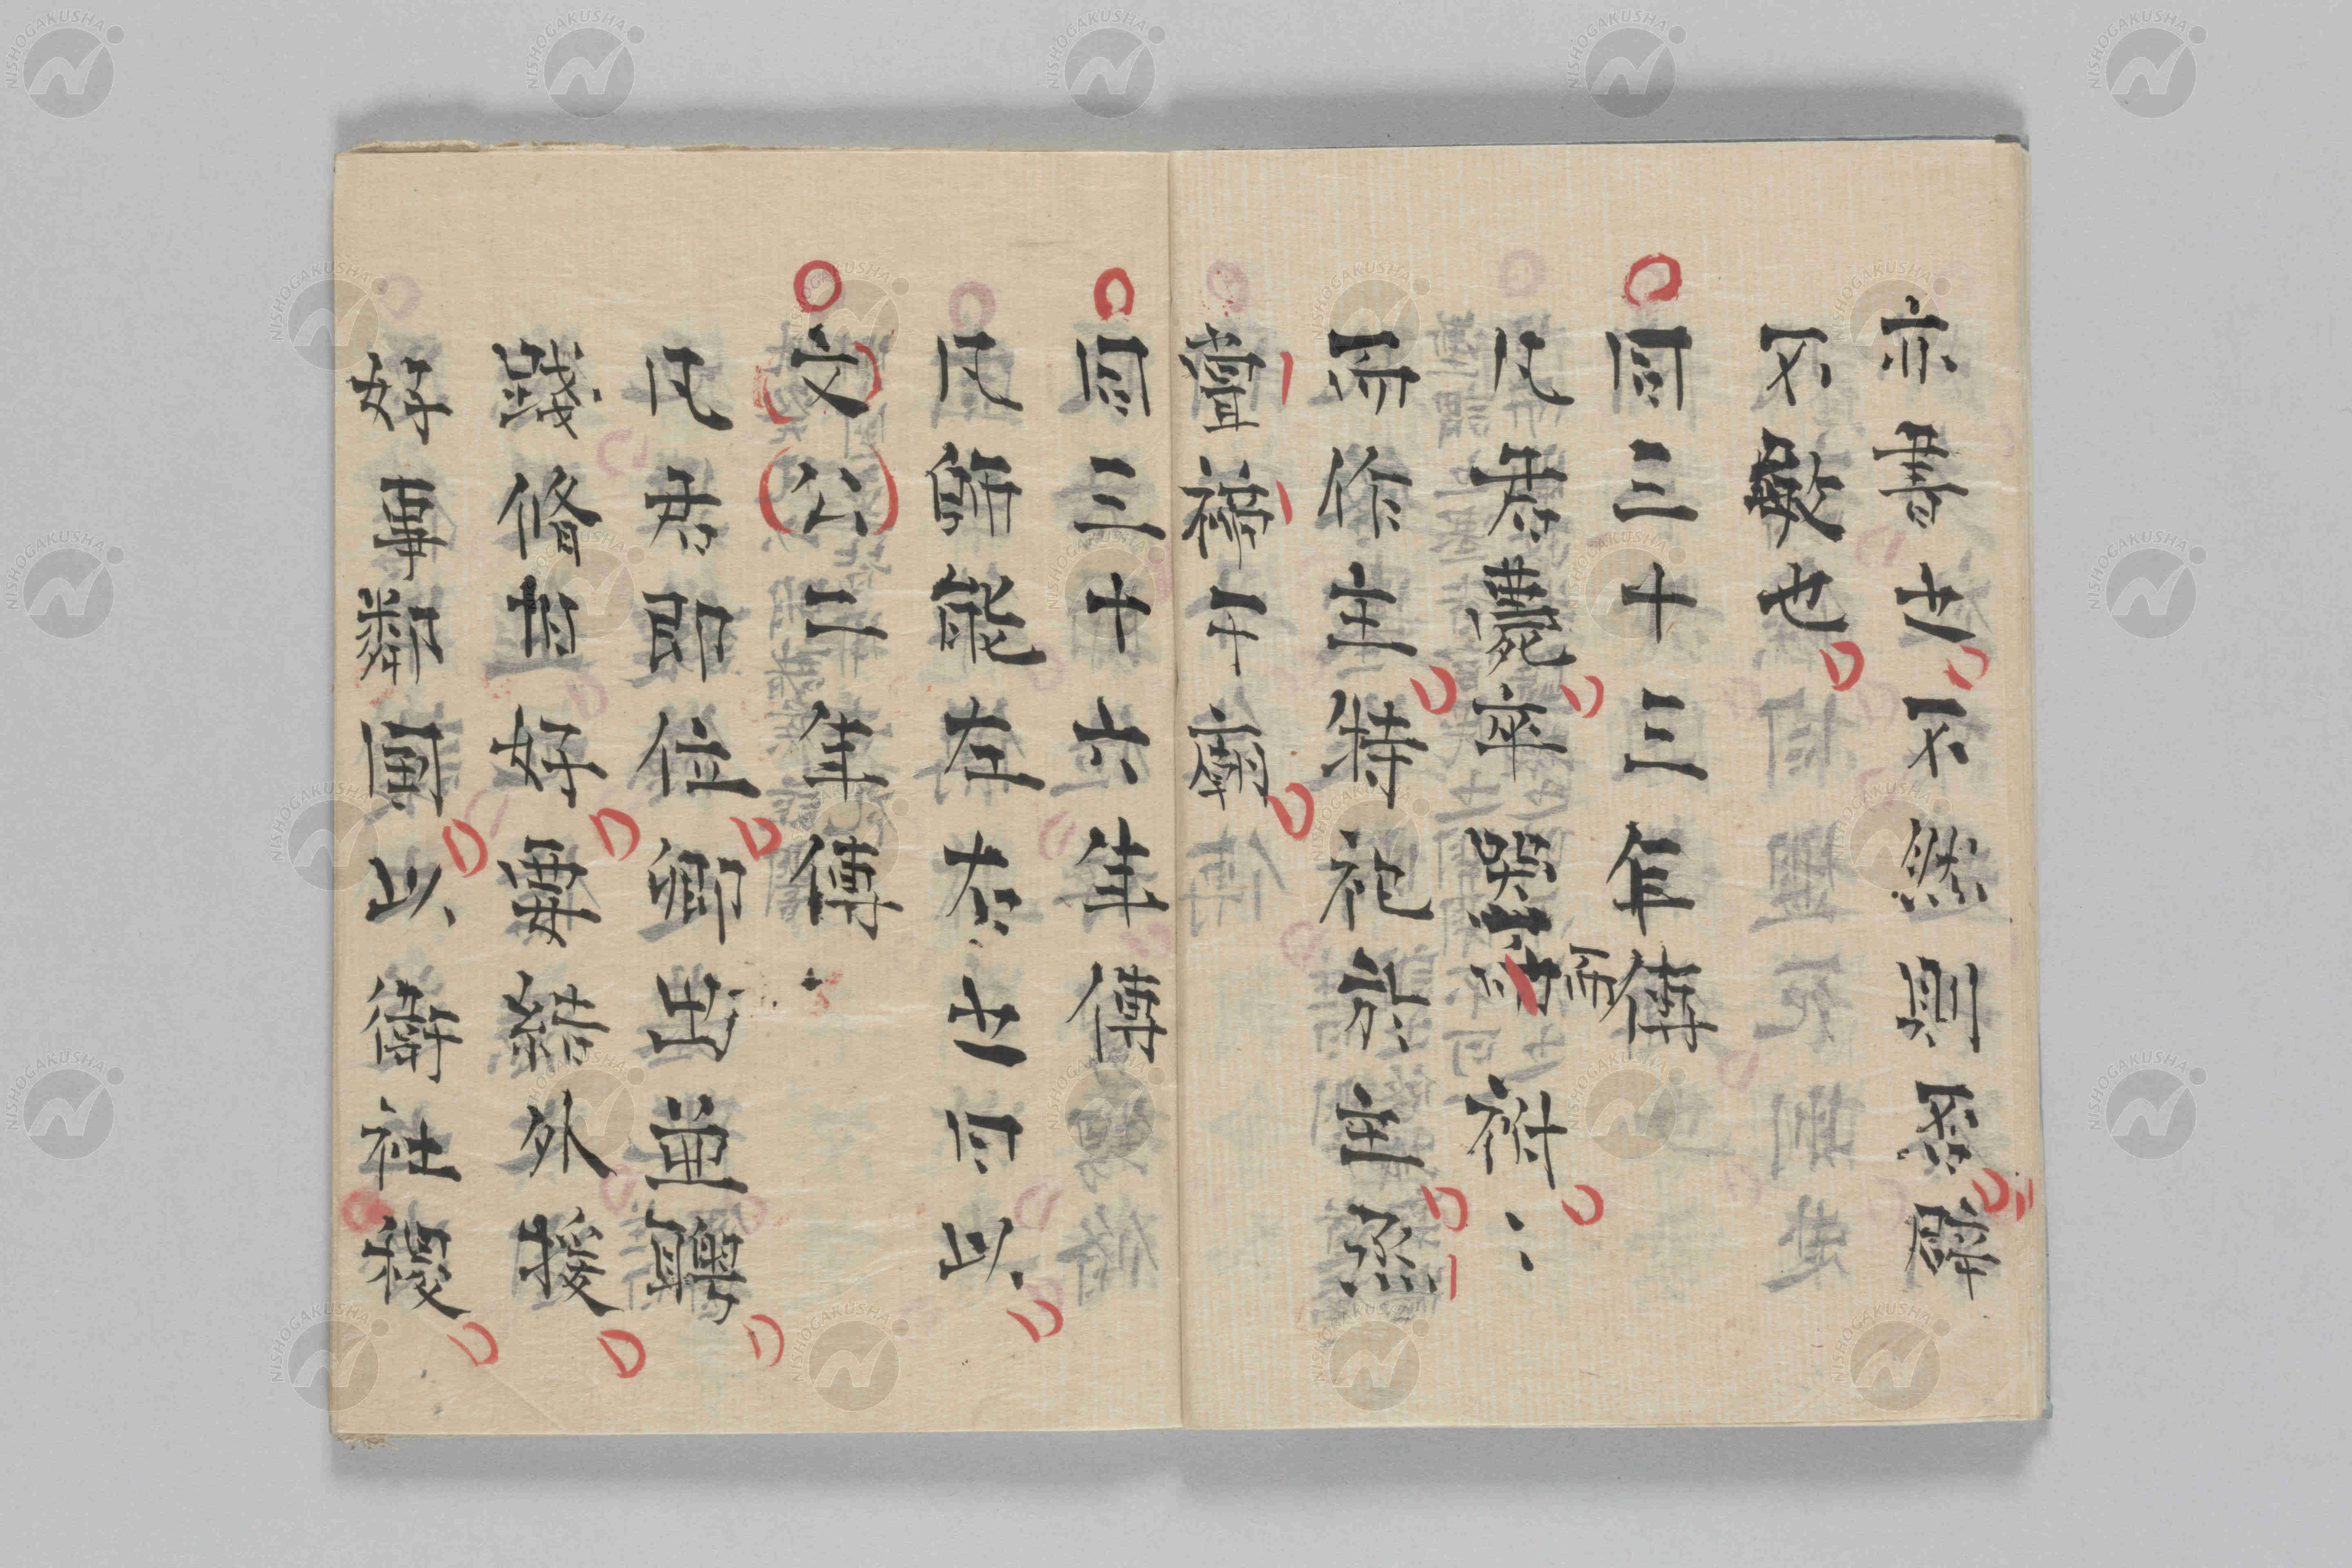 亦書之不然則否辟
不敏也
同三十三年傳
凡君薨卒哭而祔〻
而作主特祀於主烝
嘗禘于廟
同三十六年傳
凡師能左右之曰以
文公二年傳
凡君即位卿出並聘
踐修舊好要結外援
好事鄰國以衛社稷
NISHOGAKUSHA